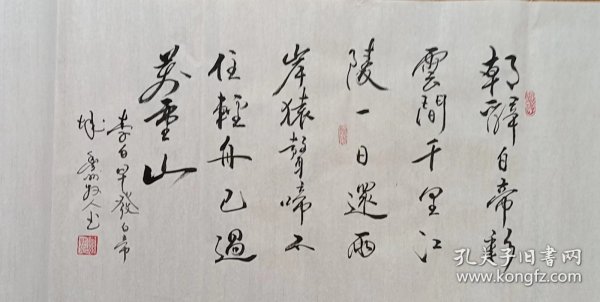 朝辭白帝彩
雲間千里江
陵一日還兩
岸猿聲啼不
住輕舟已過
萬重山
李白早發白帝
城
孔夫子旧书网
www.kongfz.com